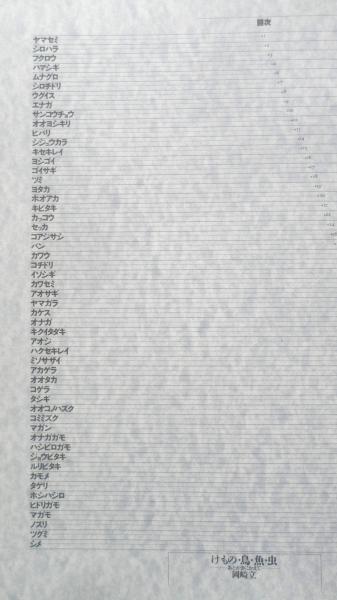 目次
ヤマセミ
シロハラ
フクロウ
ハマシギ
ムナグロ
シロチドリ
ウグイス
エナガ
サンコウチョウ
オオヨシキリ
ヒバリ
シジュウカラ
キセキレイ
ヨシゴイ
ゴイサギ
ツミ
ヨタカ
ホオアカ
キビタキ
カッコウ
セッカ
コアジサシ
バン
カワウ
コチドリ
イソシギ
カワセミ
アオサギ
ヤマガラ
カケス
オナガ
キクイタダキ
アオジ
ハクセキレイ
ミソサザイ
アカゲラ
オオタカ
コゲラ
タシギ
オオコノハズク
コミミズク
マガン
オナガガモ
ハシビロガモ
ジョウビタキ
ルリビタキ
カモメ
タゲリ
ホシハジロ
ヒドリガモ
マガモ
ノスリ
ツグミ
シメ
けもの・鳥・魚・虫
岡崎立